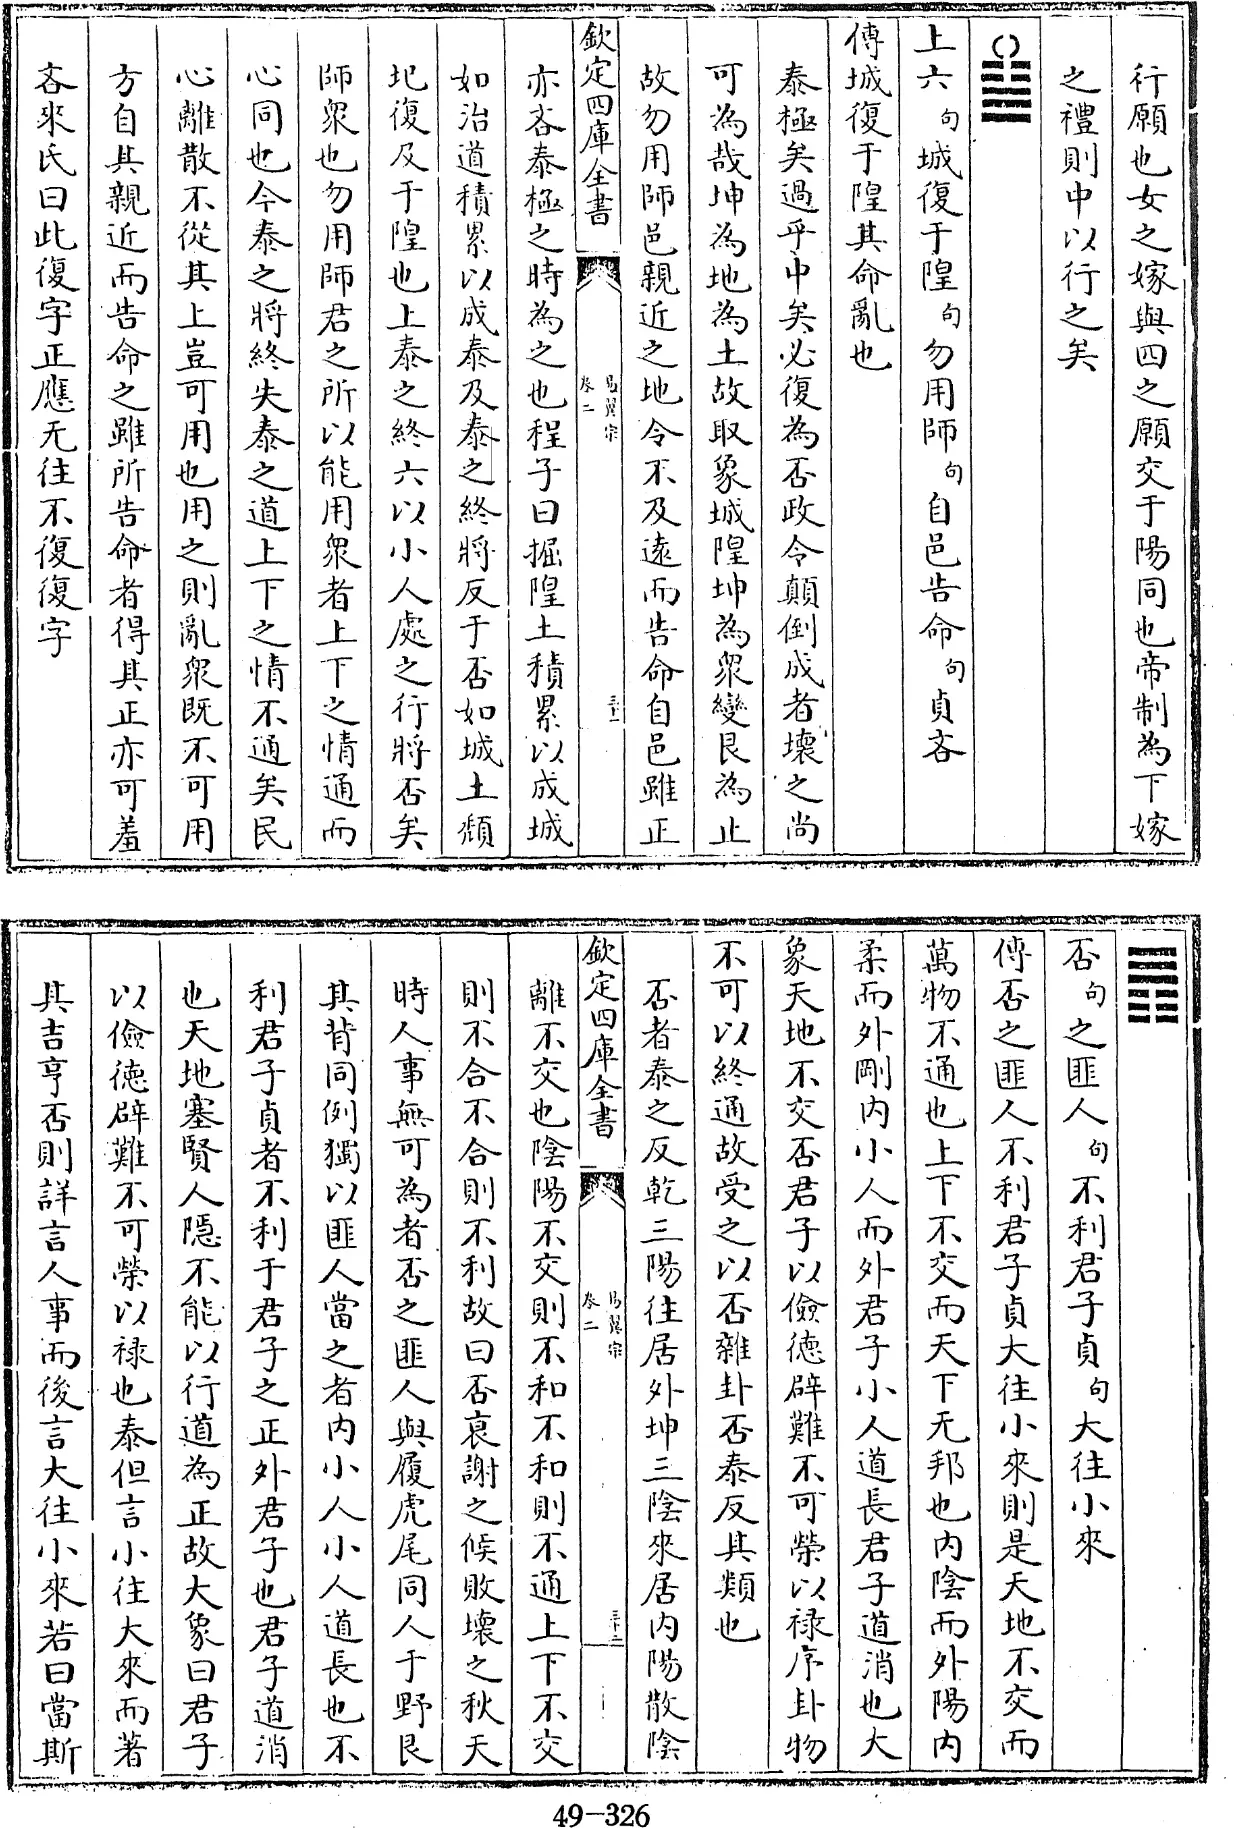 行願也女之嫁與四之願交于陽同也帝制為下嫁
之禮則中以行之矣
上六句城復于隍句勿用師句自邑告命句貞吝
傳城復于隍其命亂也
泰極矣過乎中矣必復為否政令顛倒成者壞之尚
可為哉坤為地為土故取象城隍坤為衆變艮為止
故勿用師邑親近之地令不及遠而告命自邑雖正
欽定四庫全書
易翼宗
卷二
三十一
亦吝泰極之時為之也程子曰掘隍土積累以成城
如治道積累以成泰及泰之終將反于否如城土頹
圮復及于隍也上泰之終六以小人處之行將否矣
師衆也勿用師君之所以能用衆者上下之情通而
心同也今泰之將終失泰之道上下之情不通矣民
心離散不從其上豈可用也用之則亂衆既不可用
方自其親近而告命之雖所告命者得其正亦可羞
吝來氏曰此復字正應无往不復復字
否句之匪人句不利君子貞句大往小來
傳否之匪人不利君子貞大往小來則是天地不交而
萬物不通也上下不交而天下无邦也内陰而外陽内
柔而外剛内小人而外君子小人道長君子道消也大
象天地不交否君子以儉德辟難不可榮以祿序卦物
不可以終通故受之以否雜卦否泰反其類也
否者泰之反乾三陽往居外坤三陰來居内陽散陰
欽定四庫全書
易翼宗
卷二
三十二
離不交也陰陽不交則不和不和則不通上下不交
則不合不合則不利故曰否衰謝之候敗壞之秋天
時人事無可為者否之匪人與履虎尾同人于野艮
其背同例獨以匪人當之者内小人小人道長也不
利君子貞者不利于君子之正外君子也君子道消
也天地塞賢人隱不能以行道為正故大象曰君子
以儉德辟難不可榮以祿也泰但言小往大來而著
其吉亨否則詳言人事而後言大往小來若曰當斯
49-326